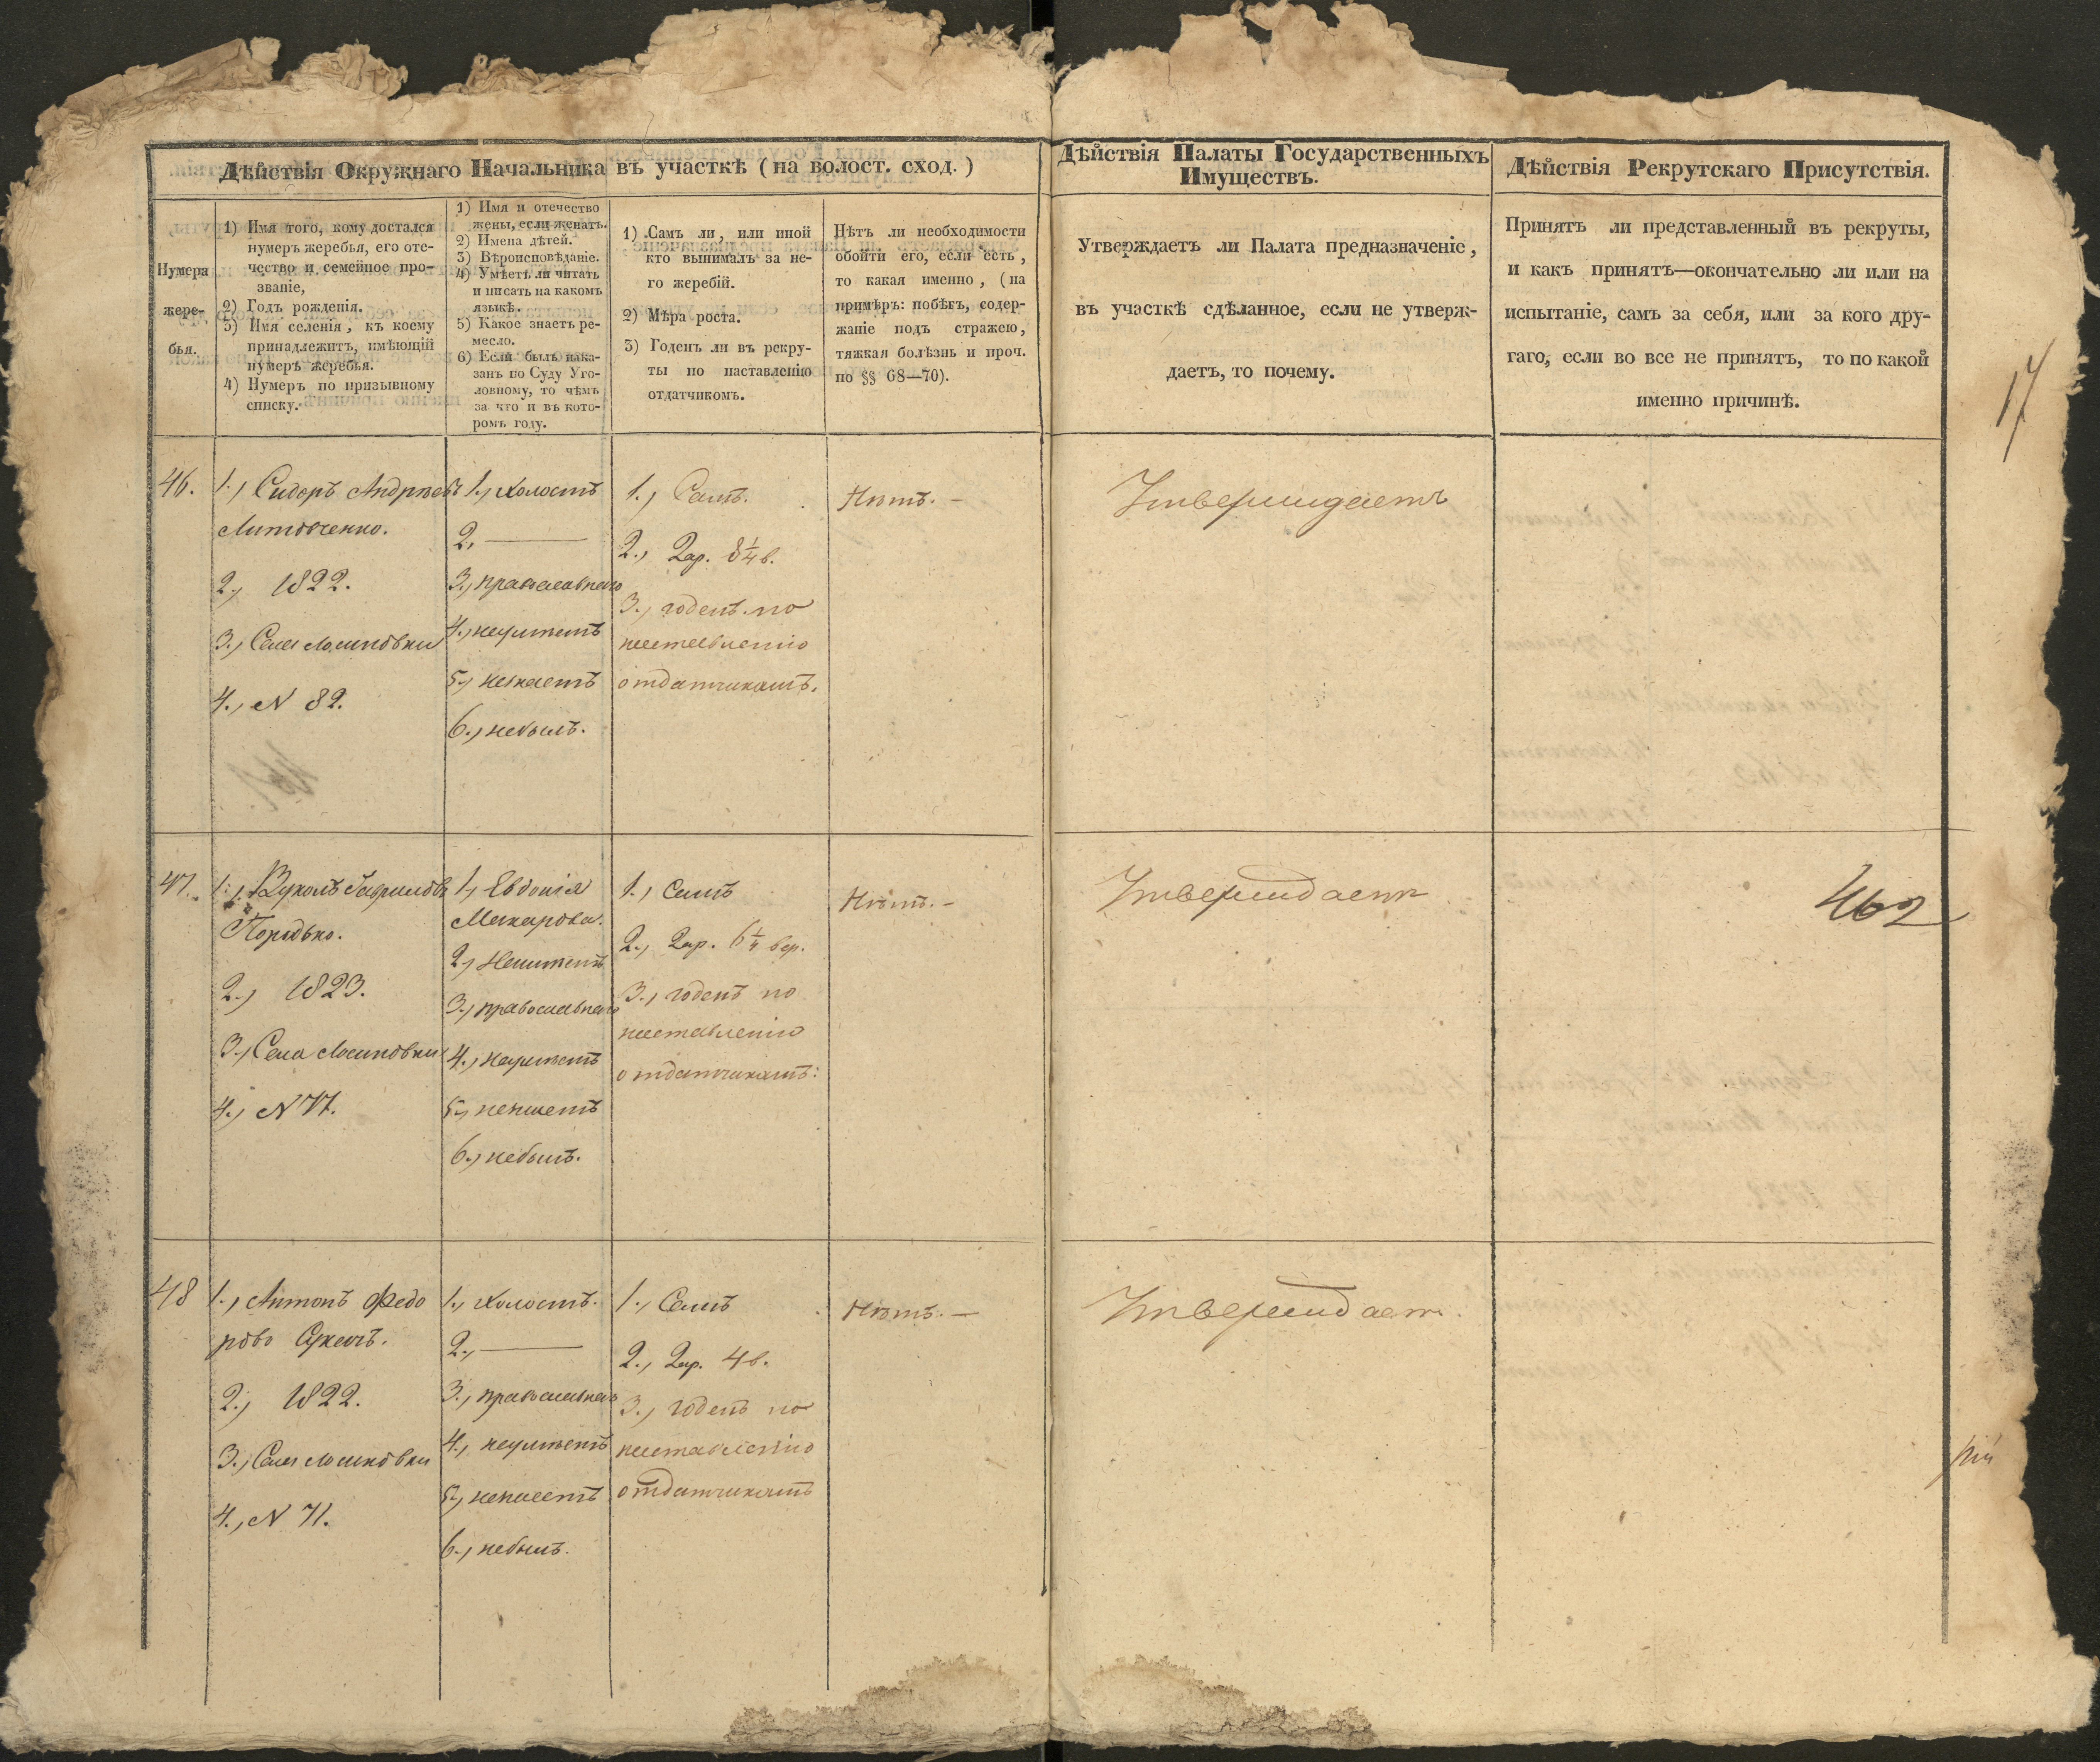 Дѣйствія Окружнаго Начальника въ участкѣ (на волост. сход.)
Дѣйствія Палаты Государственныхъ
Имуществъ.
Дѣйствія Рекрутскаго Присутствія.
Нумера
жере-
бья.
1) Имя того, кому достался
нумеръ жеребья, его оте-
чество и семейное про-
званіе,
2) Годъ рожденія.
3) Имя селенія, къ коему
принадлежитъ, имѣющій
нумеръ жеребья.
4) Нумеръ по призывному
списку.
1) Имя и отечество
жены, если женатъ.
2) Имена дѣтей.
3) Вѣроисповѣданіе.
4) Умѣетъ ли читать
и писать на какомъ
языкѣ.
5) Какое знаетъ ре-
месло.
6) Если былъ нака-
занъ по Суду Уго-
ловному, то чѣмъ
за что и въ кото-
ромъ году.
1) Самъ ли, или иной
кто вынималъ за не-
го жеребій.
2) Мѣра роста.
3) Годенъ ли въ рекру-
ты по наставленію
отдатчикомъ.
Нѣтъ ли необходимости
обойти его, если есть,
то какая именно, (на
примѣръ: побѣгъ, содер-
жаніе подъ стражею,
тяжкая болѣзнь и проч.
по §§ 68—70).
Утверждаетъ ли Палата предназначеніе,
въ участкѣ сдѣланное, если не утверж-
даетъ, то почему.
Принятъ ли представленный въ рекруты,
и какъ принятъ—окончательно ли или на
испытаніе, самъ за себя, или за кого дру-
гаго, если во все не принятъ, то по какой
именно причинѣ.
17
46.
1., Сидоръ Андреевъ
Литовченко.
2., 1822.
3., Села Лосиновки
4., N 82.
1., Холостъ
2. —
3., православнаго
4., неумѣетъ
5., незнаетъ
6., небылъ.
1., Самъ.
2., 2 ар. 3 1/4 в.
3., годенъ по
наставленію
отдатчикамъ.
Нѣтъ. —
Утверждаетъ
47.
1., Вуколъ Гавриловъ
2., 1823.
3., Села Лосиновки
4., N 77.
1., Евдокія
Макарова.
2., Неимѣетъ
3., православнаго
4., неумѣетъ
6., небылъ.
1., Самъ
2., 2 ар. 6 1/4 вер.
3., годенъ по
наставленію
отдатчикамъ:
Нѣтъ. —
Утверждаетъ
462
48
1., Антонъ Федо
2., 1822.
3., Села Лосиновки
4., N 71.
1., Холостъ.
2., —
3., православнаго
4., неумѣетъ
6., небылъ.
1., Самъ
2., 2 ар. 4 в.
3., годенъ по
наставленію
отдатчикамъ
Нѣтъ. —
Утверждаетъ.